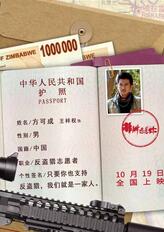 OF ZIMBABWE
1000000
中华人民共和国
护照
PASSPORT
姓名：方可成 王梓权饰
性别：男
国籍：中国
职业：反盗猎志愿者
个性签名：只要你也支持
反盗猎，我们就是一家人。
10月19日
全国上映